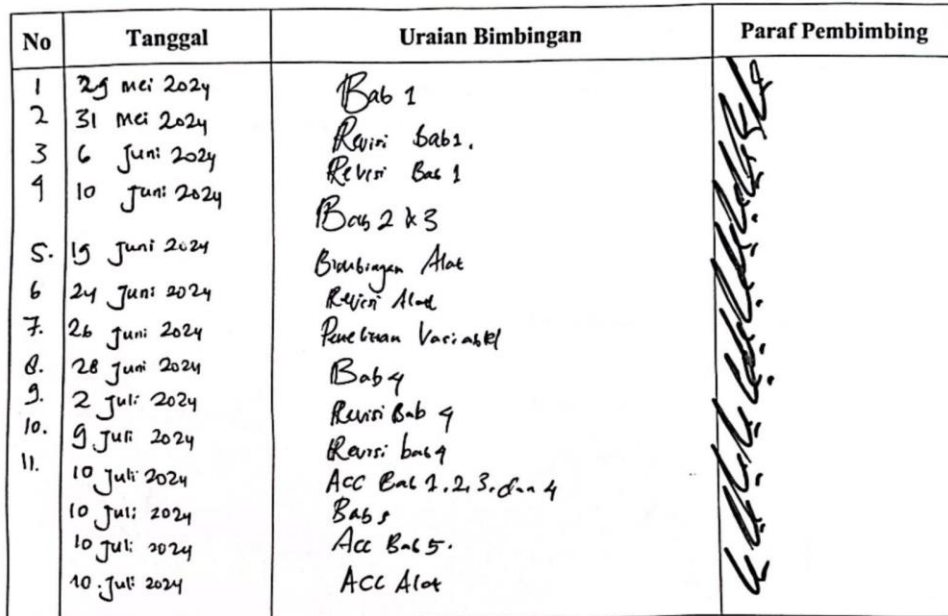 No Tanggal Uraian Bimbingan Paraf Pembimbing
1 29 Mei 2024 Bab 1
2 31 Mei 2024 Revisi Bab 1.
3 6 Juni 2024 Revisi Bab 1
4 10 Juni 2024 Bab 2 & 3
5. 19 Juni 2024 Bimbingan Alat
6 24 Juni 2024 Revisi Alat
7. 26 Juni 2024 Variabel
8. 28 Juni 2024 Bab 4
9. 2 Juli 2024 Revisi Bab 4
10. 9 Juli 2024 Revisi bab 4
11. 10 Juli 2024 ACC Bab 1, 2, 3, dan 4
10 Juli 2024 Bab 5
10 Juli 2024 Acc Bab 5.
10. Juli 2024 ACC Alat